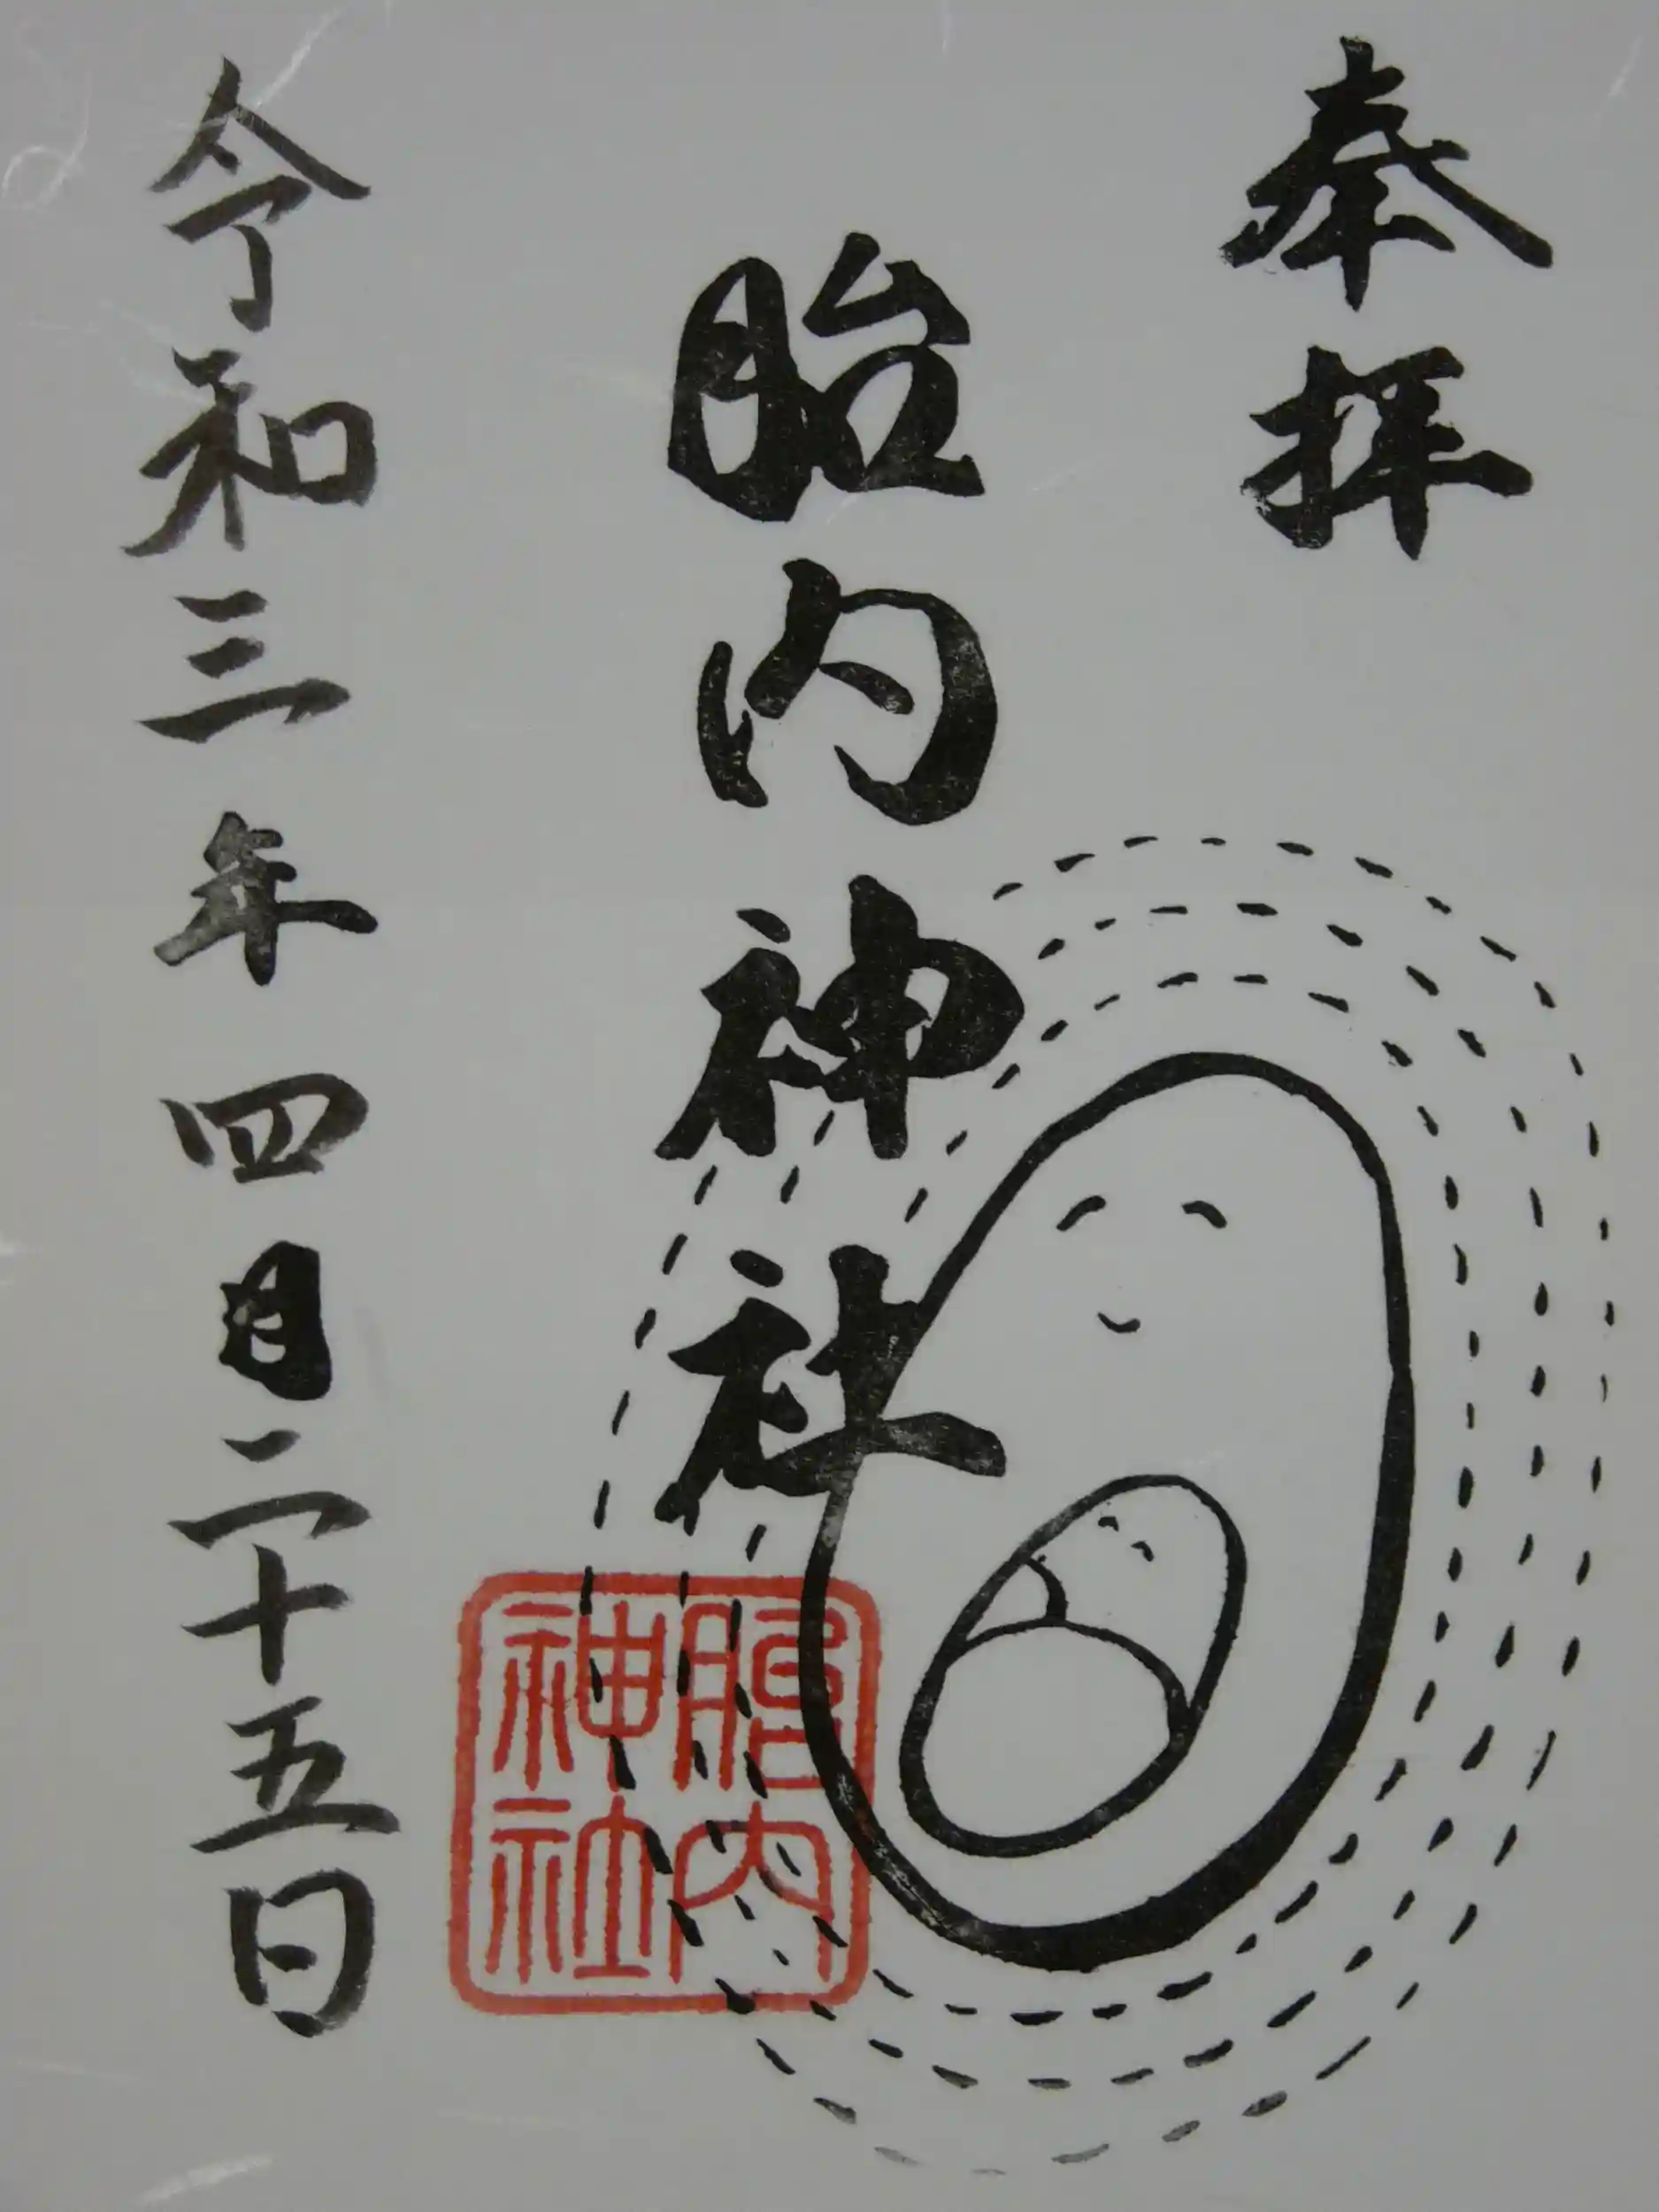 奉拝
胎内神社
胎内
神社
令和三年四月二十五日